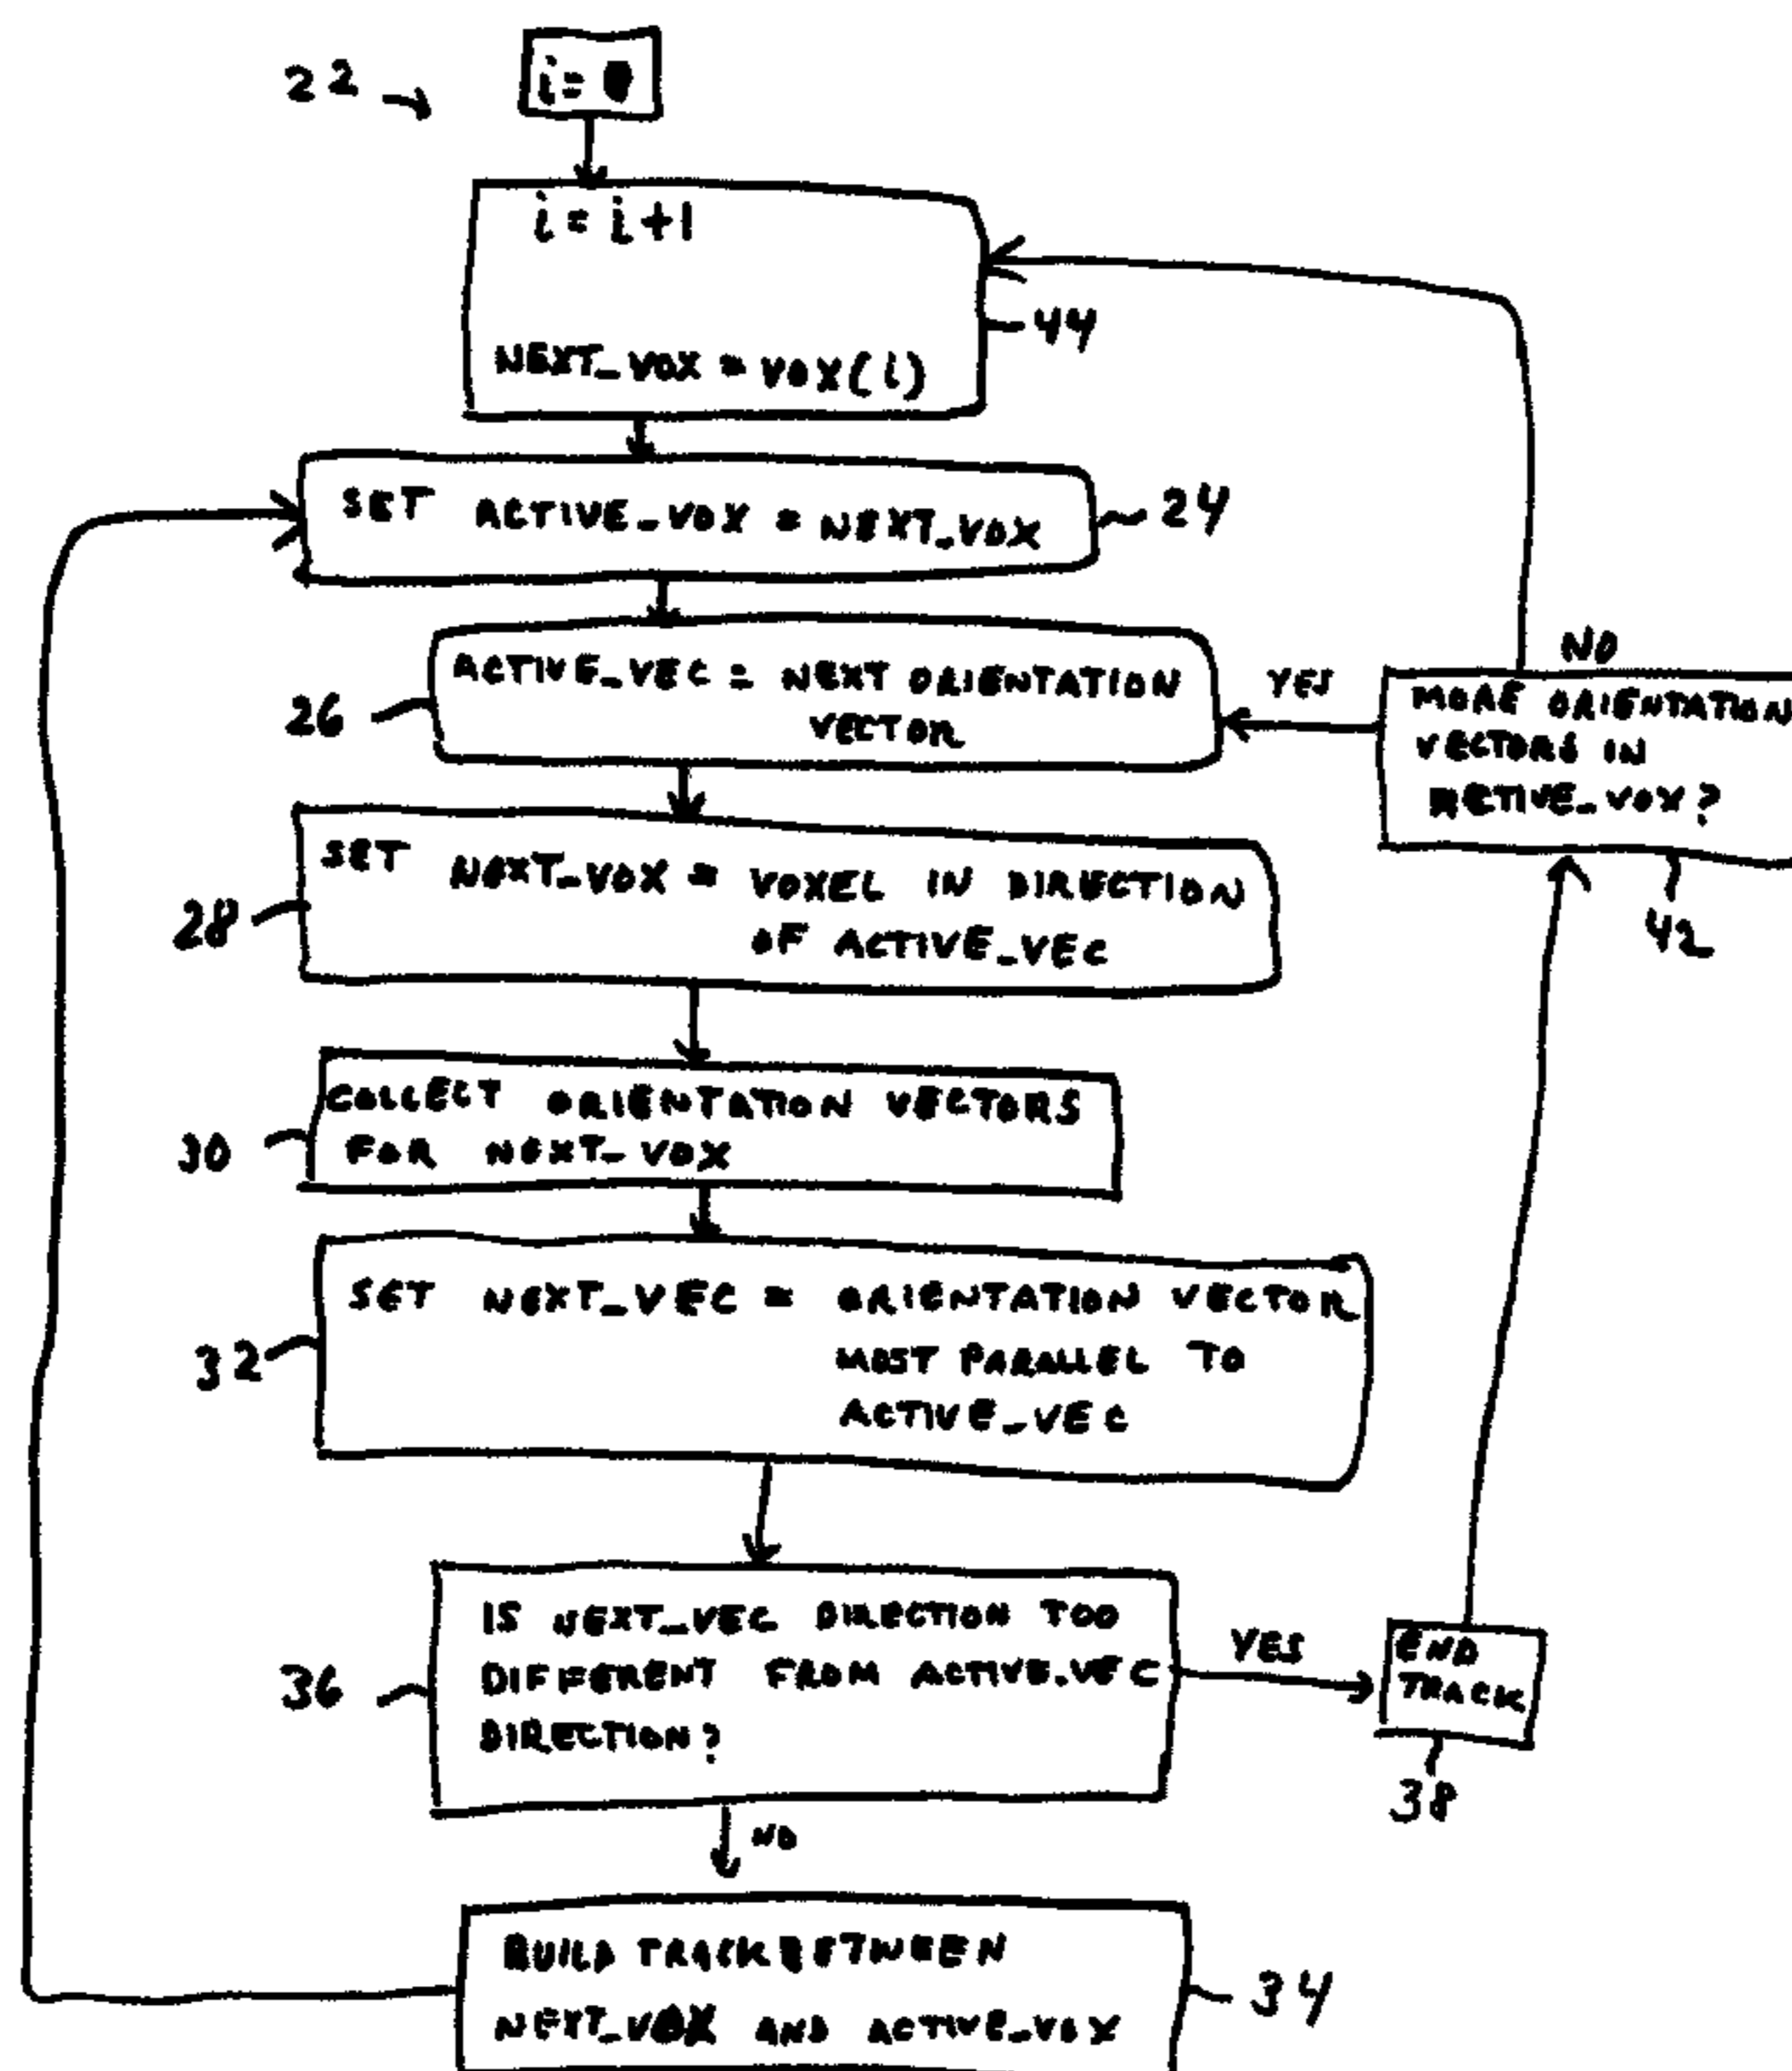 22
i= 0
i = i+1
NEXT_VOX = VOX(i)
44
SET ACTIVE_VOX = NEXT_VOX
24
ACTIVE_VEC = NEXT ORIENTATION
VECTOR
26
YES
NO
MORE ORIENTATION
VECTORS IN
ACTIVE_VOX?
42
SET NEXT_VOX = VOXEL IN DIRECTION
OF ACTIVE_VEC
28
COLLECT ORIENTATION VECTORS
FOR NEXT_VOX
30
SET NEXT_VEC = ORIENTATION VECTOR
MOST PARALLEL TO
ACTIVE_VEC
32
IS NEXT_VEC DIRECTION TOO
DIFFERENT FROM ACTIVE_VEC
DIRECTION?
36
YES
END
TRACK
38
NO
BUILD TRACK BETWEEN
NEXT_VOX AND ACTIVE_VOX
34